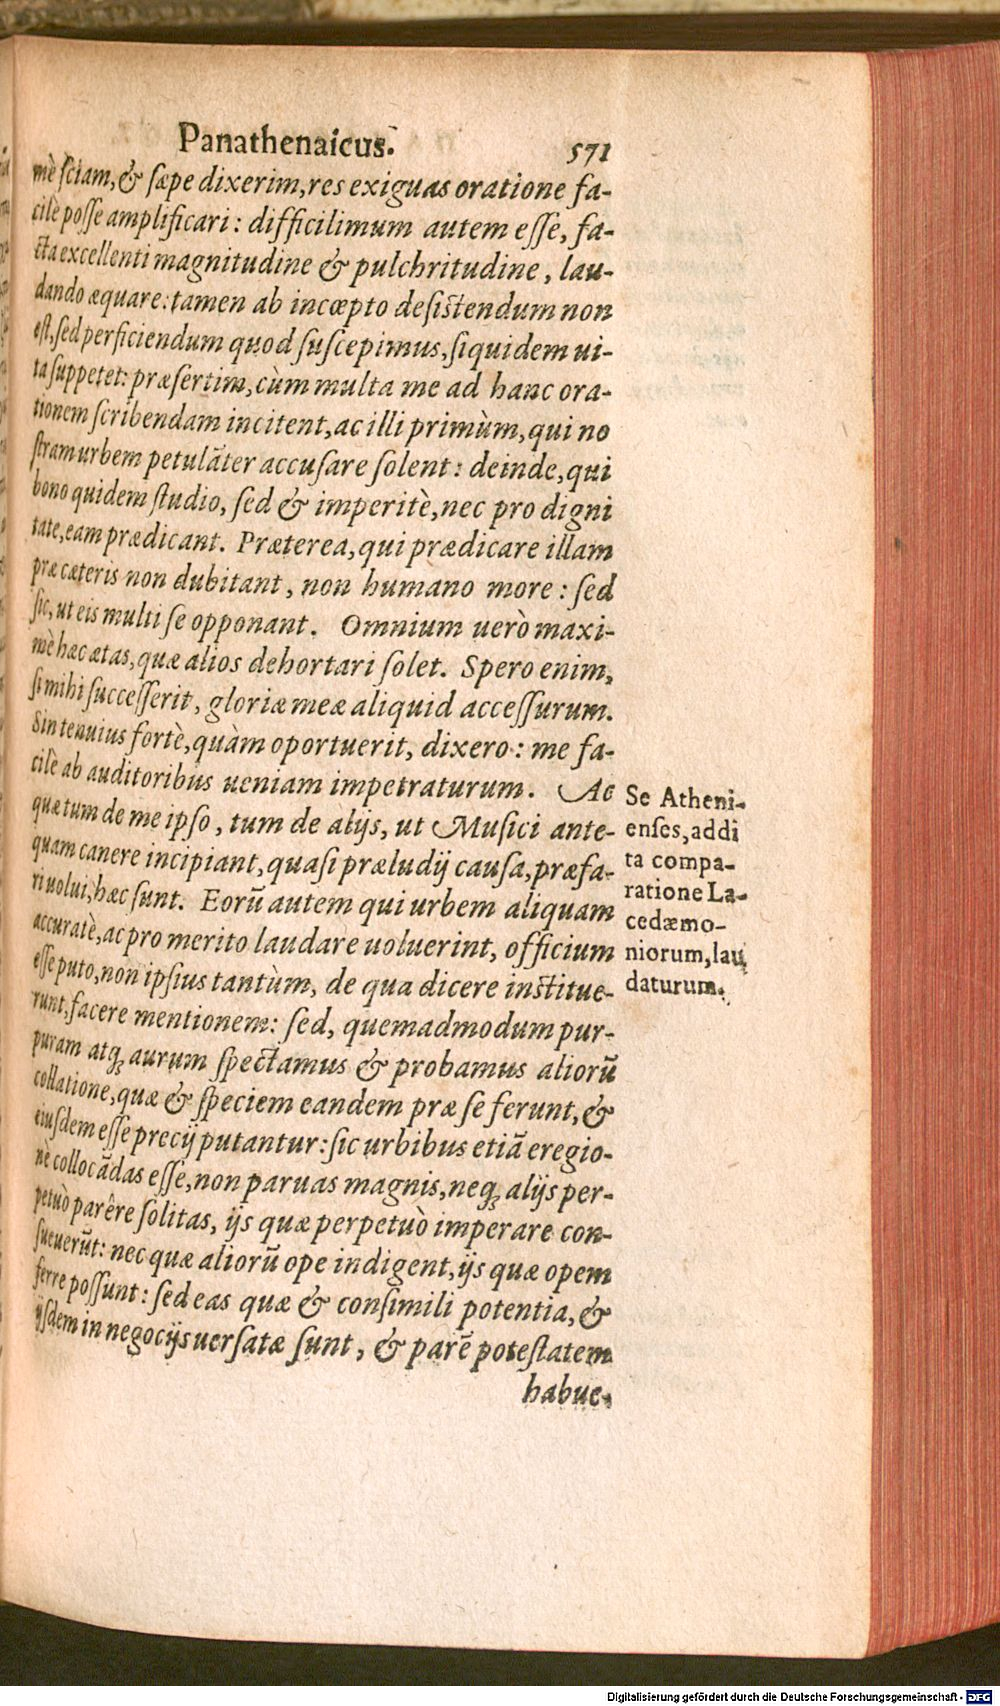 Panathenaicus. 571
mè ſciam, & ſæpe dixerim, res exiguas oratione fa-
cilè poſſe amplificari: difficilimum autem eſſe, fa-
cta excellenti magnitudine & pulchritudine, lau-
dando æquare: tamen ab incœpto deſiſtendum non
eſt, ſed perficiendum quod ſuſcepimus, ſiquidem ui-
ta ſuppetet: præſertim, cùm multa me ad hanc ora-
tionem ſcribendam incitent, ac illi primùm, qui no
ſtram urbem petulãter accuſare ſolent: deinde, qui
bono quidem ſtudio, ſed & imperitè, nec pro digni
tate, eam prædicant. Præterea, qui prædicare illam
præ cæteris non dubitant, non humano more: ſed
ſic, ut eis multi ſe opponant. Omnium uerò maxi-
mè hæc ætas, quæ alios dehortari ſolet. Spero enim,
ſi mihi ſucceſſerit, gloriæ meæ aliquid acceſſurum.
Sin tenuius fortè, quàm oportuerit, dixero: me fa-
cilè ab auditoribus ueniam impetraturum. Ac
quæ tum de me ipſo, tum de alijs, ut Muſici ante-
quam canere incipiant, quaſi præludij cauſa, præfa-
ri uolui, hæc ſunt. Eorũ autem qui urbem aliquam
accuratè, ac pro merito laudare uoluerint, officium
eſſe puto, non ipſius tantùm, de qua dicere inſtitue-
runt, facere mentionem: ſed, quemadmodum pur-
puram atq; aurum ſpectamus & probamus aliorũ
collatione, quæ & ſpeciem eandem præ ſe ferunt, &
eiuſdem eſſe precij putantur: ſic urbibus etiã eregio-
nè collocãdas eſſe, non paruas magnis, neq; alijs per-
petuò parêre ſolitas, ijs quæ perpetuò imperare con-
ſueuerũt: nec quæ aliorũ ope indigent, ijs quæ opem
ferre poſſunt: ſed eas quæ & conſimili potentia, &
ijſdem in negocijs uerſatæ ſunt, & parẽ poteſtatem
habue-
Se Atheni-
enſes, addi
ta compa-
ratione La-
cedæmo-
niorum, lau
daturum.
Digitalisierung gefördert durch die Deutsche Forschungsgemeinschaft - DFG